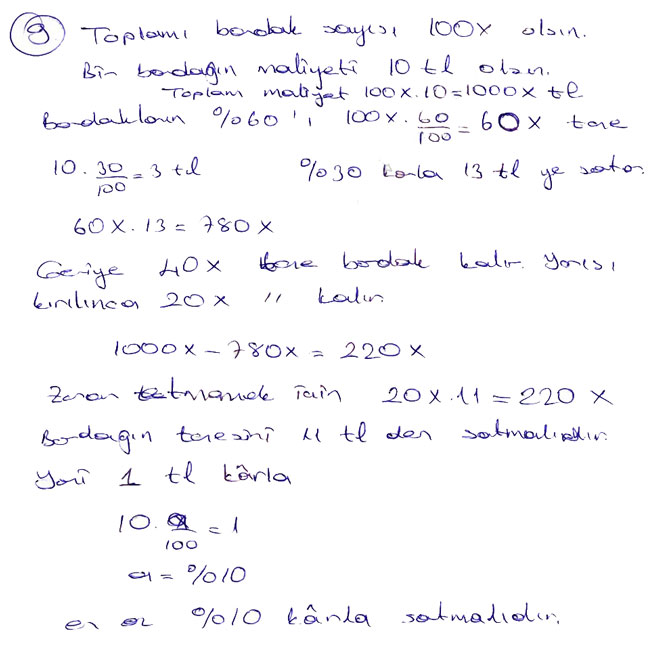 9 Toplamı bardak sayısı 100x olsun.
Bir bardağın maliyeti 10 tl olsun.
Toplam maliyet 100x.10=1000x tl
Bardakların %60'ı 100x. 60/100 = 60x tane
10. 30/100 = 3 tl %30 karla 13 tl ye satar.
60x.13 = 780x
Geriye 40x tane bardak kalır. Yarısı
kırılınca 20x " kalır.
1000x - 780x = 220x
Zarar etmemek için 20x.11 = 220x
Bardağın tanesini 11 tl den satmalıdır.
Yani 1 tl kârla
10. a/100 = 1
a = %10
en az %10 kârla satmalıdır.